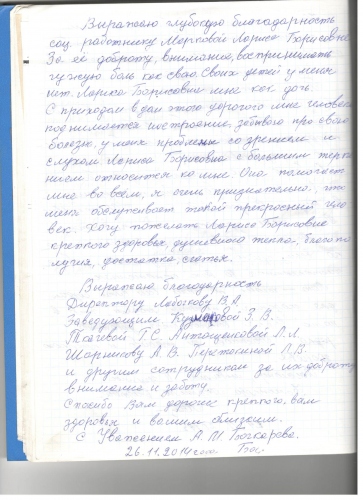 Выражаю глубокую благодарность
соц. работнику Марковой Ларисе Борисовне
За её доброту, внимание, воспринимать
чужую боль как свою. Своих детей у меня
нет. Лариса Борисовна мне как дочь.
С приходом в дом этого дорогого мне человека
поднимается настроение, забываю про свою
болезнь, у меня проблемы со зрением и
слухом Лариса Борисовна с большим терпе
нием относится ко мне. Она помогает
мне во всём, я очень признательна, что
меня обслуживает такой прекрасный чело
век. Хочу пожелать Ларисе Борисовне
крепкого здоровья, душевного тепла, благопо
лучия, достатка, счастья.
Выражаю благодарность
Директору Лабокову В.А
Заведующим Кузнецовой З. В.
Ткачевой Т.С Антощенковой Л.Л
Шарникову А. В. Перетокиной Л.В.
и другим сотрудникам за их доброту
внимание и заботу.
Спасибо Вам дорогие крепкого, вам
здоровья и вашим близким.
С Уважением А. М Бочкарева.
26.11.2014 года